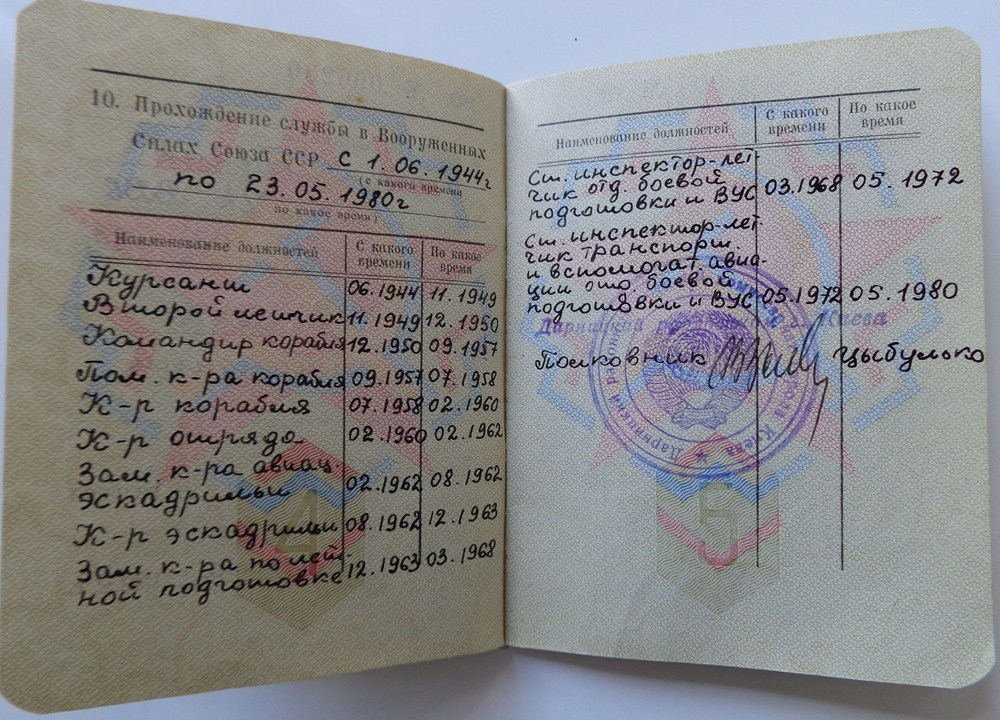 10. Прохождение службы в Вооруженных
Силах Союза ССР с 1.06.1944г
(с какого времени
по 23.05.1980г
по какое время)
Наименование должностей С какого времени По какое время
Курсант 06.1944 11.1949
Второй летчик 11.1949 12.1950
Командир корабля 12.1950 09.1957
Пом. к-ра корабля 09.1957 07.1958
К-р корабля 07.1958 02.1960
К-р отряда 02.1960 02.1962
Зам. к-ра авиац.
эскадрильи 02.1962 08.1962
К-р эскадрильи 08.1962 12.1963
Зам. к-ра по лет-
ной подготовке 12.1963 03.1968
4
Наименование должностей С какого времени По какое время
Ст. инспектор-лет-
чик отд. боевой
подготовки и ВУС 03.1968 05.1972
Ст. инспектор-лет-
чик транспорт.
и вспомогат. авиа-
ции отд боевой
подготовки и ВУС 05.1972 05.1980
Дарницкий Киева
Полковник Цыбулько
5